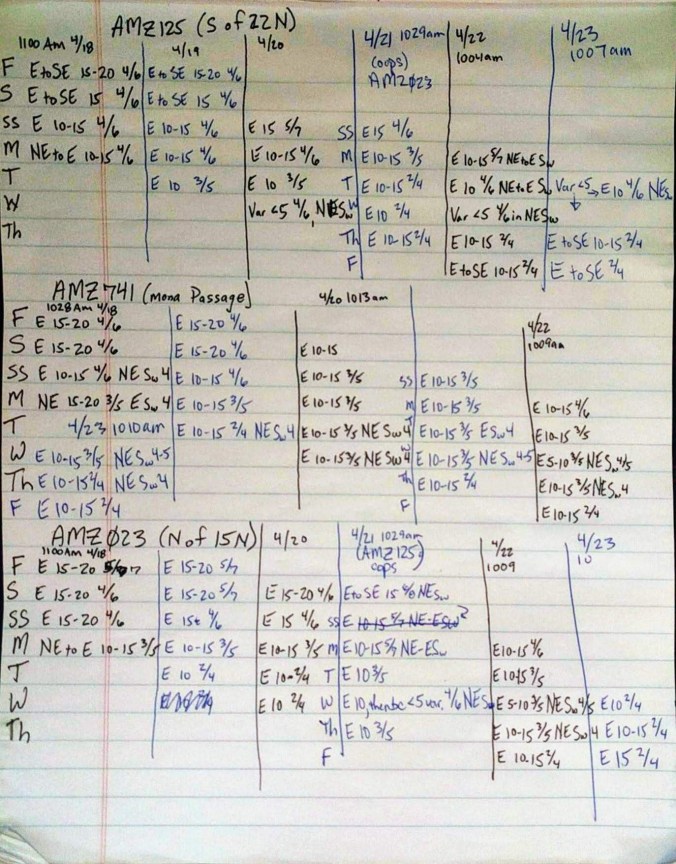 AMZ125 (S of 22N)
1100 Am 4/18 4/19 4/20 4/21 1029am 4/22 4/23
(oops) 1004am 1007am
AMZØ23
F E to SE 15-20 4/6 E to SE 15-20 4/6
S E to SE 15 4/6 E to SE 15 4/6
SS E 10-15 4/6 E 10-15 4/6 E 15 5/7 SS E15 4/6
M NE to E 10-15 4/6 E 10-15 4/6 E 10-15 4/6 M E10-15 3/5 E 10-15 5/7 NE to E Sw
T E 10 3/5 E 10 3/5 T E10-15 2/4 E 10 4/6 NE to E Sw Var <5 → E10 4/6 NESw
W Var <5 4/6, NESw W E10 2/4 Var <5 4/6 in NESw
Th Th E 10-15 2/4 E 10-15 2/4 E to SE 10-15 2/4
F E to SE 10-15 2/4 E to SE 2/4
AMZ 741 (mona Passage)
1028 Am 4/18 4/20 1013am 4/22
1009am
F E 15-20 4/6 E 15-20 4/6
S E 15-20 4/6 E 15-20 4/6 E 10-15
SS E 10-15 4/6 NE Sw 4 E 10-15 4/6 E 10-15 3/5 SS E 10-15 3/5
M NE 15-20 3/5 E Sw 4 E 10-15 3/5 E 10-15 3/5 M E 10-15 3/5 E 10-15 4/6
T 4/23 1010am E 10-15 2/4 NE Sw 4 E 10-15 3/5 NE Sw 4 T E10-15 3/5 E Sw 4 E 10-15 3/5
W E 10-15 3/5 NE Sw 4-5 E 10-15 3/5 NE Sw 4 W E 10-15 3/5 NE Sw 4-5 E5-10 3/5 NE Sw 4/5
Th E 10-15 2/4 NE Sw 4 Th E 10-15 2/4 E 10-15 3/5 NE Sw 4
F E 10-15 2/4 F E 10-15 2/4
AMZ Ø23 (N of 15N) 4/20 4/21 1029am 4/22 4/23
1100 Am 4/18 (AMZ125) 1009 10
oops
F E 15-20 E 15-20 5/7
S E 15-20 4/6 E 15-20 5/7 E 15-20 4/6 E to SE 15 NE Sw
SS E 15-20 4/6 E 15 4/6 E 15 4/6 SS E 10-15 5/7 NE-E Sw
M NE to E 10-15 3/5 E 10-15 3/5 E 10-15 3/5 M E10-15 5/7 NE-E Sw E10-15 4/6
T E 10 2/4 E 10 2/4 T E 10 3/5 E 10-15 3/5
W E 10 2/4 W E 10, then bc <5 var. 4/6 NE Sw E 5-10 3/5 NE Sw 4/5 E10 2/4
Th Th E 10 3/5 E 10-15 3/5 NE Sw 4 E 10-15 2/4
F E 10-15 2/4 E 15 2/4